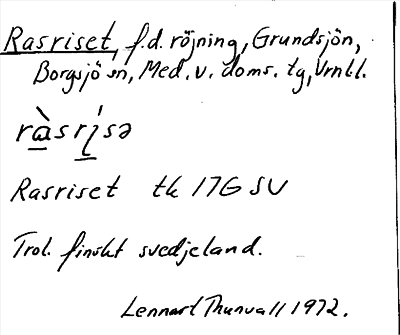 Rasriset, f.d. röjning, Grundsjön,
Borgsjö sn, Med. v. doms. tg, Vrnll.
ràsrísə
Rasriset tk 17G SV
Trol. finskt svedjeland.
Lennart Thunvall 1972.